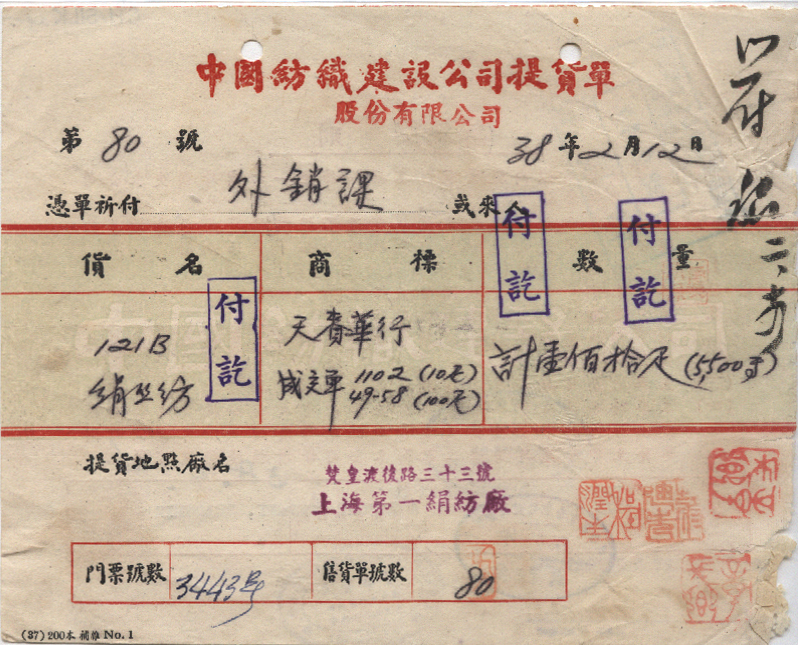 中國紡織建設公司提貨單
股份有限公司
第 80 號
38年2月12日
憑單祈付 外銷課 或來人
貨名 商標 數量
付訖
付訖
付訖
121B
絹丝紡
天賚華行
成交單 1102 (10疋)
49-58 (100疋)
計壹佰拾疋 (5,500碼)
提貨地點廠名
梵皇渡後路三十三號
上海第一絹紡廠
門票號數 3443号 售貨單號數 80
(37) 200本 補維 No. 1